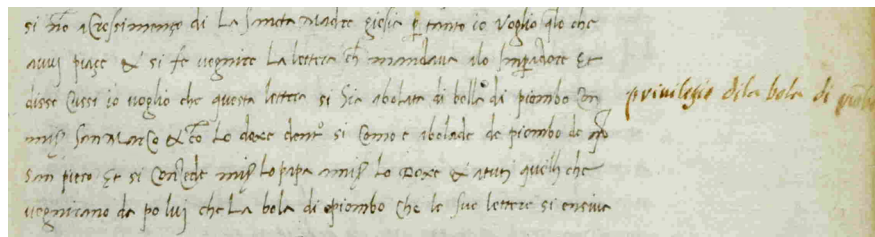 si no acressimenço di La Sancta Madre giesia per tanto io Voglio quelo che
avui piaçe & si fe vegnire La lettera che mandava alo Imperadore Et
disse Cussi io voglio che questa lettera si sia abolata di bolla di piombo Con
miser San Marco & con Lo doxe dentro si Como e abolade de piombo de miser
San piero Et si Conçede miser Lo papa a miser Lo Doxe & a tuti quelli che
vegnirano da po lui che La bola di piombo Che le sue lettere si
privilegio dela bola di